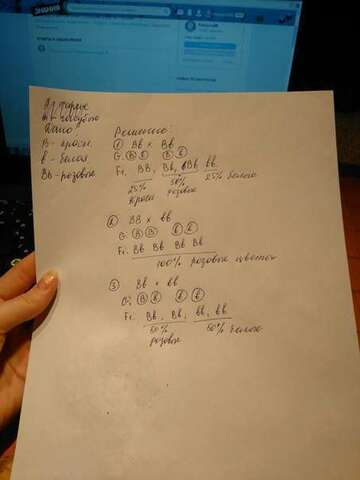 ЗНАНИЯ
Дано:
B - красн.
b - белая
Bb - розовые
Решение:
① Bb × Bb
G: Ⓑ ⓑ Ⓑ ⓑ
F₁: BB, Bb, Bb bb
25% 50% 25% белые
красн розовые
② BB × bb
G: Ⓑ Ⓑ ⓑ ⓑ
F₁: Bb Bb Bb Bb
100% розовые цветки
③ Bb × bb
G: Ⓑ ⓑ ⓑ ⓑ
F₁: Bb, Bb, bb, bb
50% 50% белые
розовые